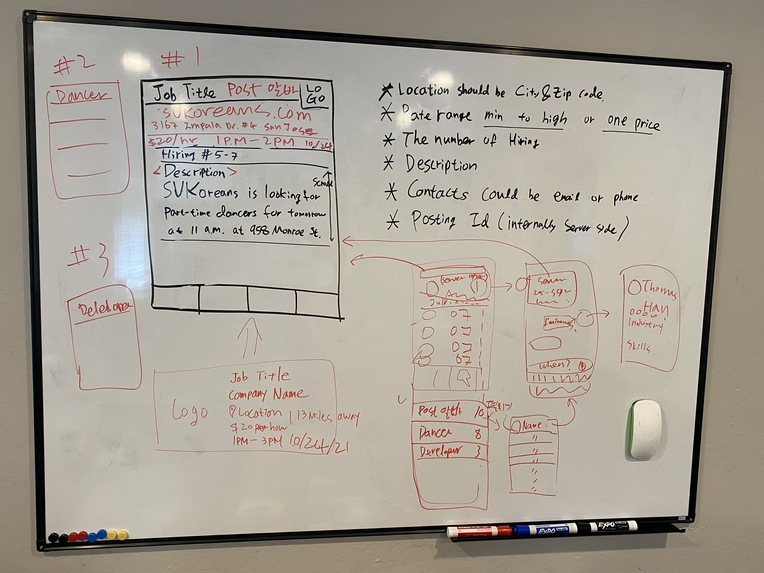 #2
Dancer
#1
Job Title Post 알바
LOGO
SVKoreans.com
3167 Impala Dr. #4 San Jose
$20/hr 1PM-2PM 10/24
Hiring #5-7
<Description>
Scroll
SVKoreans is looking for
Part-time dancers for tomorrow
at 11 a.m. at 958 Monroe St.
#3
Developer
Logo
Job Title
Company Name
Location | 13 Miles away
$20 per hour
1PM-3PM 10/24/21
* Location should be City & Zip code.
* Rate range min to high or one price
* The number of Hiring
* Description
* Contacts could be email or phone
* Posting Id (internally server side)
Server
07
07
07
07
Post 알바 10
Dancer 8
Developer 3
Name
Server
when?
Thomas
Han
Industry
Skills
EXPO
EXPO